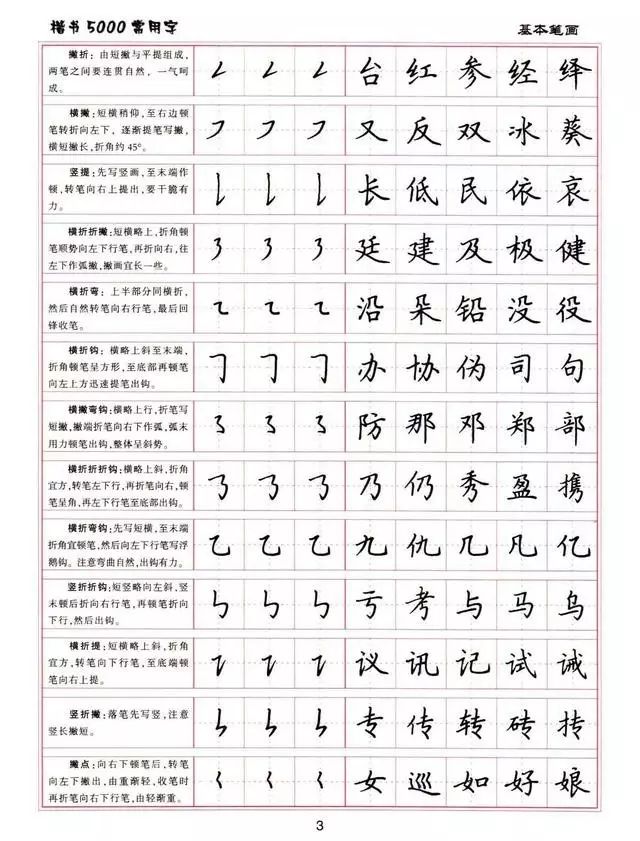 楷书5000常用字
基本笔画
撇折：由短撇与平提组成，
两笔之间要连贯自然，一气呵
成。
台 红 参 经 绎
横撇：短横稍仰，至右边顿
笔转折向左下，逐渐提笔写撇，
横短撇长，折角约45°。
又 反 双 冰 葵
竖提：先写竖画，至末端作
顿，转笔向右上提出，要干脆有
力。
长 低 民 依 哀
横折折撇：短横略上，折角顿
笔顺势向左下行笔，再折向右，往
左下作弧撇，撇画宜长一些。
廷 建 及 极 健
横折弯：上半部分同横折，
然后自然转笔向右行笔，最后回
锋收笔。
沿 朵 铅 没 役
横折钩：横略上斜至末端，
折角顿笔呈方形，至底部再顿笔
向左上方迅速提笔出钩。
办 协 伪 司 句
横撇弯钩：横略上行，折笔写
短撇，撇端折笔向右下作弧，弧末
用力顿笔出钩，整体呈斜势。
防 那 邓 郑 部
横折折折钩：横略上斜，折角
宜方，转笔左下行，再折笔向右，顿
笔呈角，再左下行笔至底部出钩。
乃 仍 秀 盈 携
横折弯钩：先写短横，至末端
折角宜顿笔，然后向左下行笔写浮
鹅钩。注意弯曲自然，出钩有力。
九 仇 几 凡 亿
竖折折钩：短竖略向左斜，竖
末顿后折向右行笔，再顿笔折向
下行，然后出钩。
亏 考 与 马 乌
横折提：短横略上斜，折角
宜方，转笔向下行笔，至底端顿
笔向右上提。
议 讯 记 试 诫
竖折撇：落笔先写竖，注意
竖长撇短。
专 传 转 砖 抟
撇点：向右下顿笔后，转笔
向左下撇出，由重渐轻，收笔时
再折笔向右下行笔，由轻渐重。
女 巡 如 好 娘
3